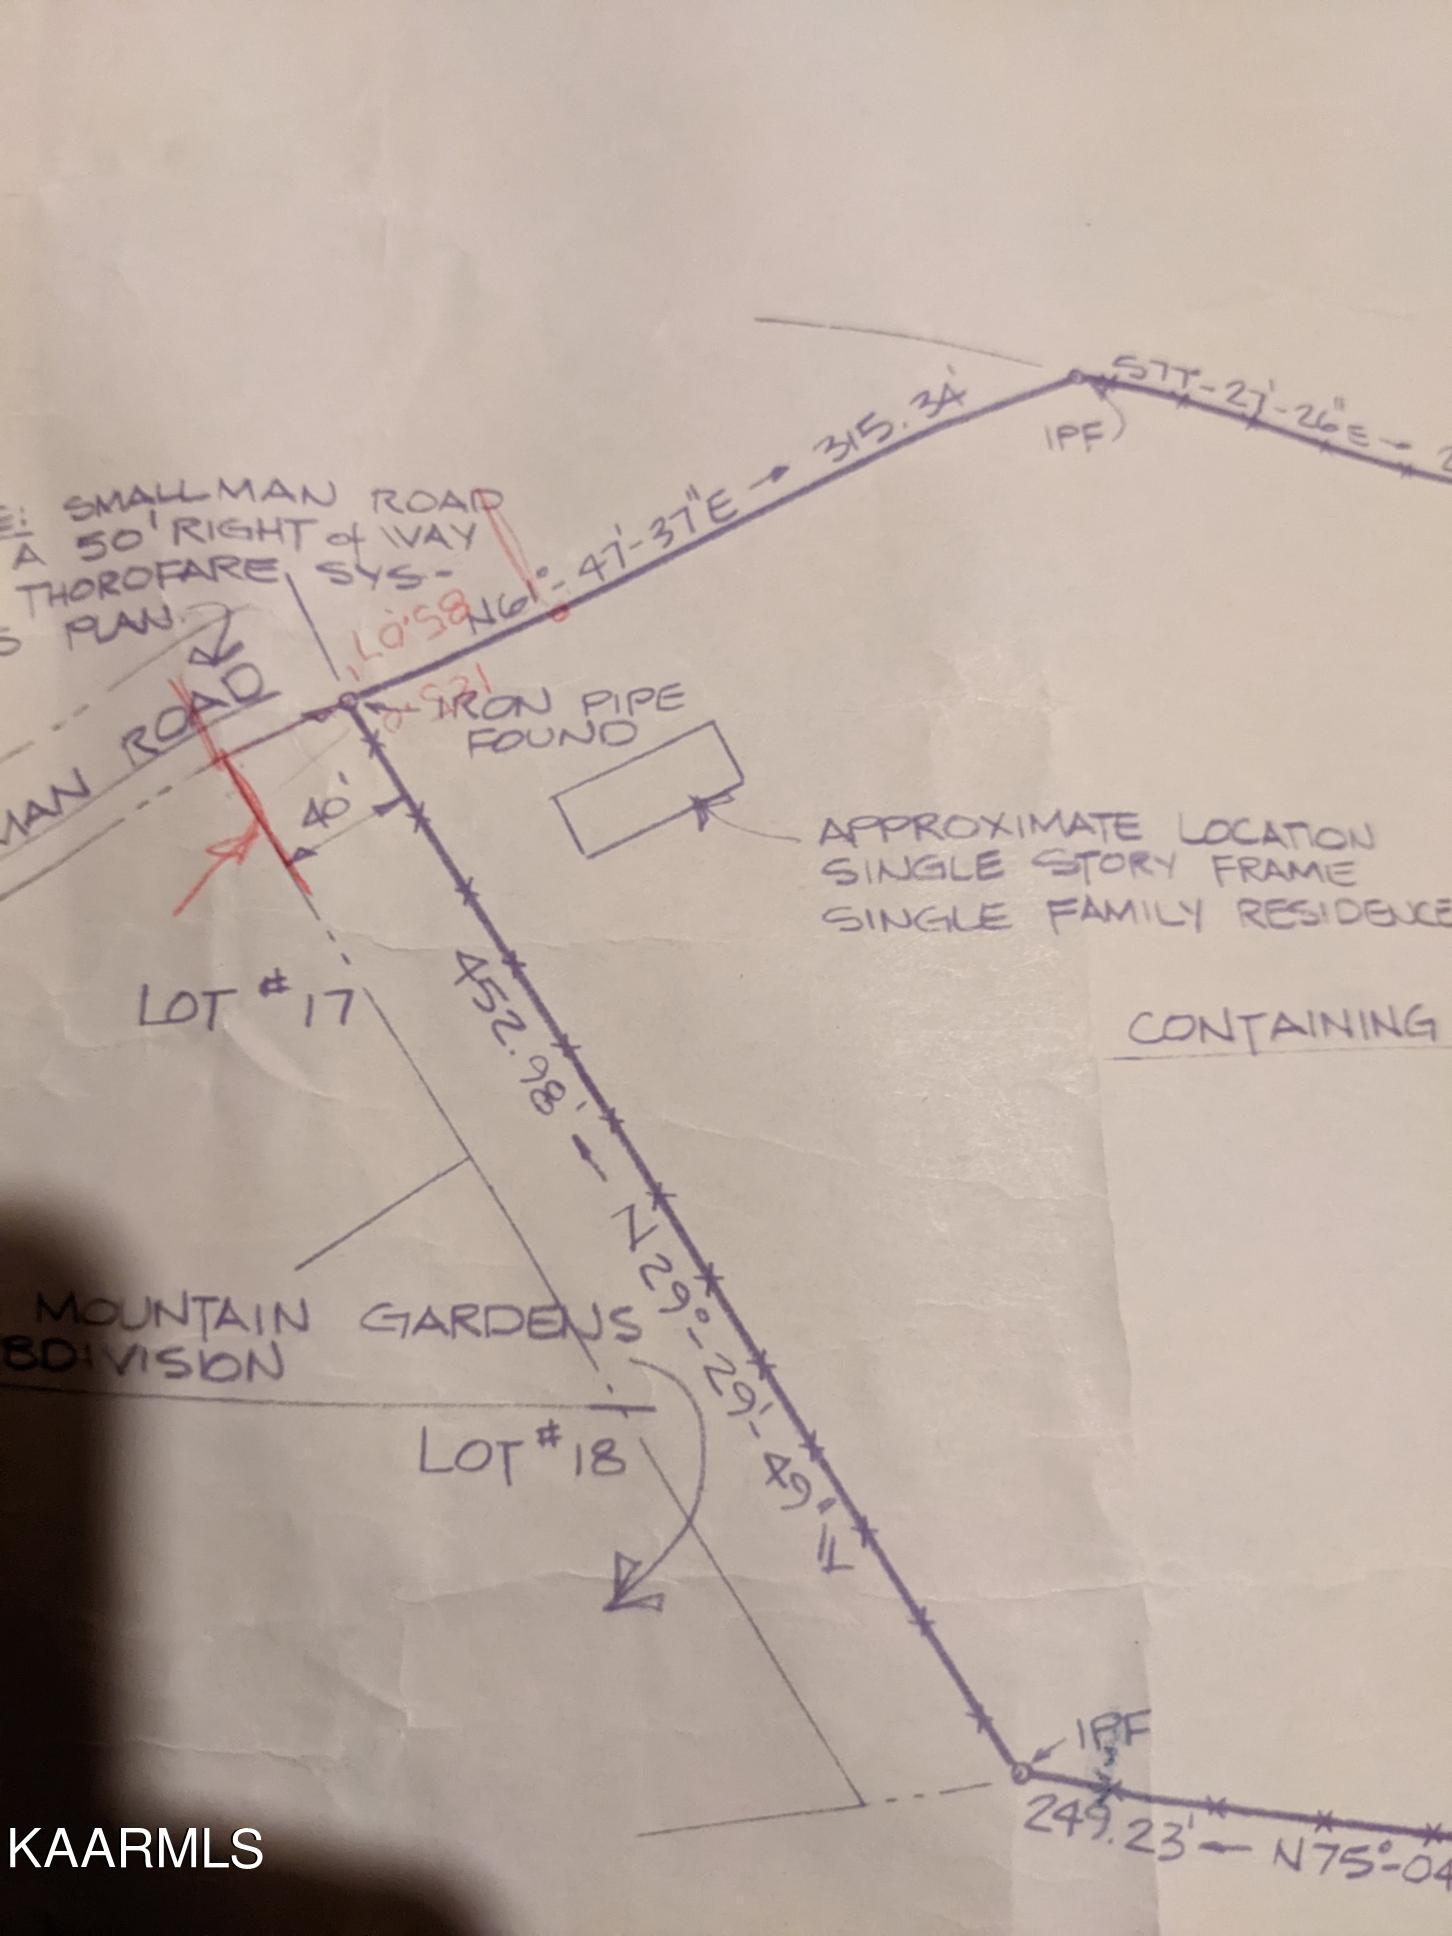 SMALLMAN ROAD
A 50' RIGHT of WAY
THOROFARE SYS-
PLAN.
MAN ROAD
N61°-47'-37"E → 315.34'
IPF
27'-26"E →
85.07'
IRON PIPE
FOUND
40'
APPROXIMATE LOCATION
SINGLE STORY FRAME
SINGLE FAMILY RESIDENCE
CONTAINING
LOT #17
452.98' ← N29°-29'-49"
MOUNTAIN GARDENS
BDIVISION
LOT #18
IPF
249.23' ← N75°-04
KAARMLS